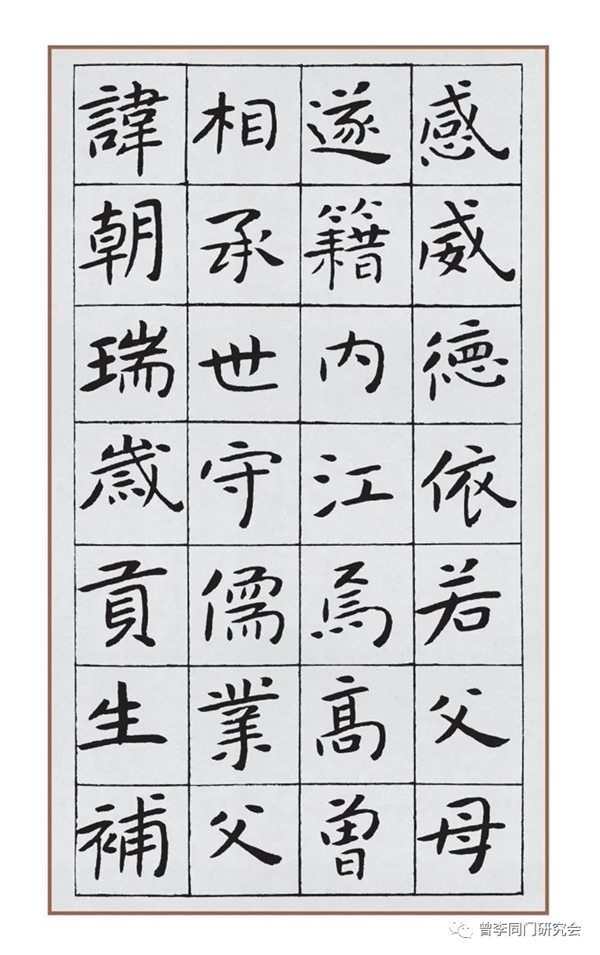 感威德依若父母
遂籍内江焉高曾
相承世守儒業父
諱朝瑞歲貢生補
曾李同门研究会